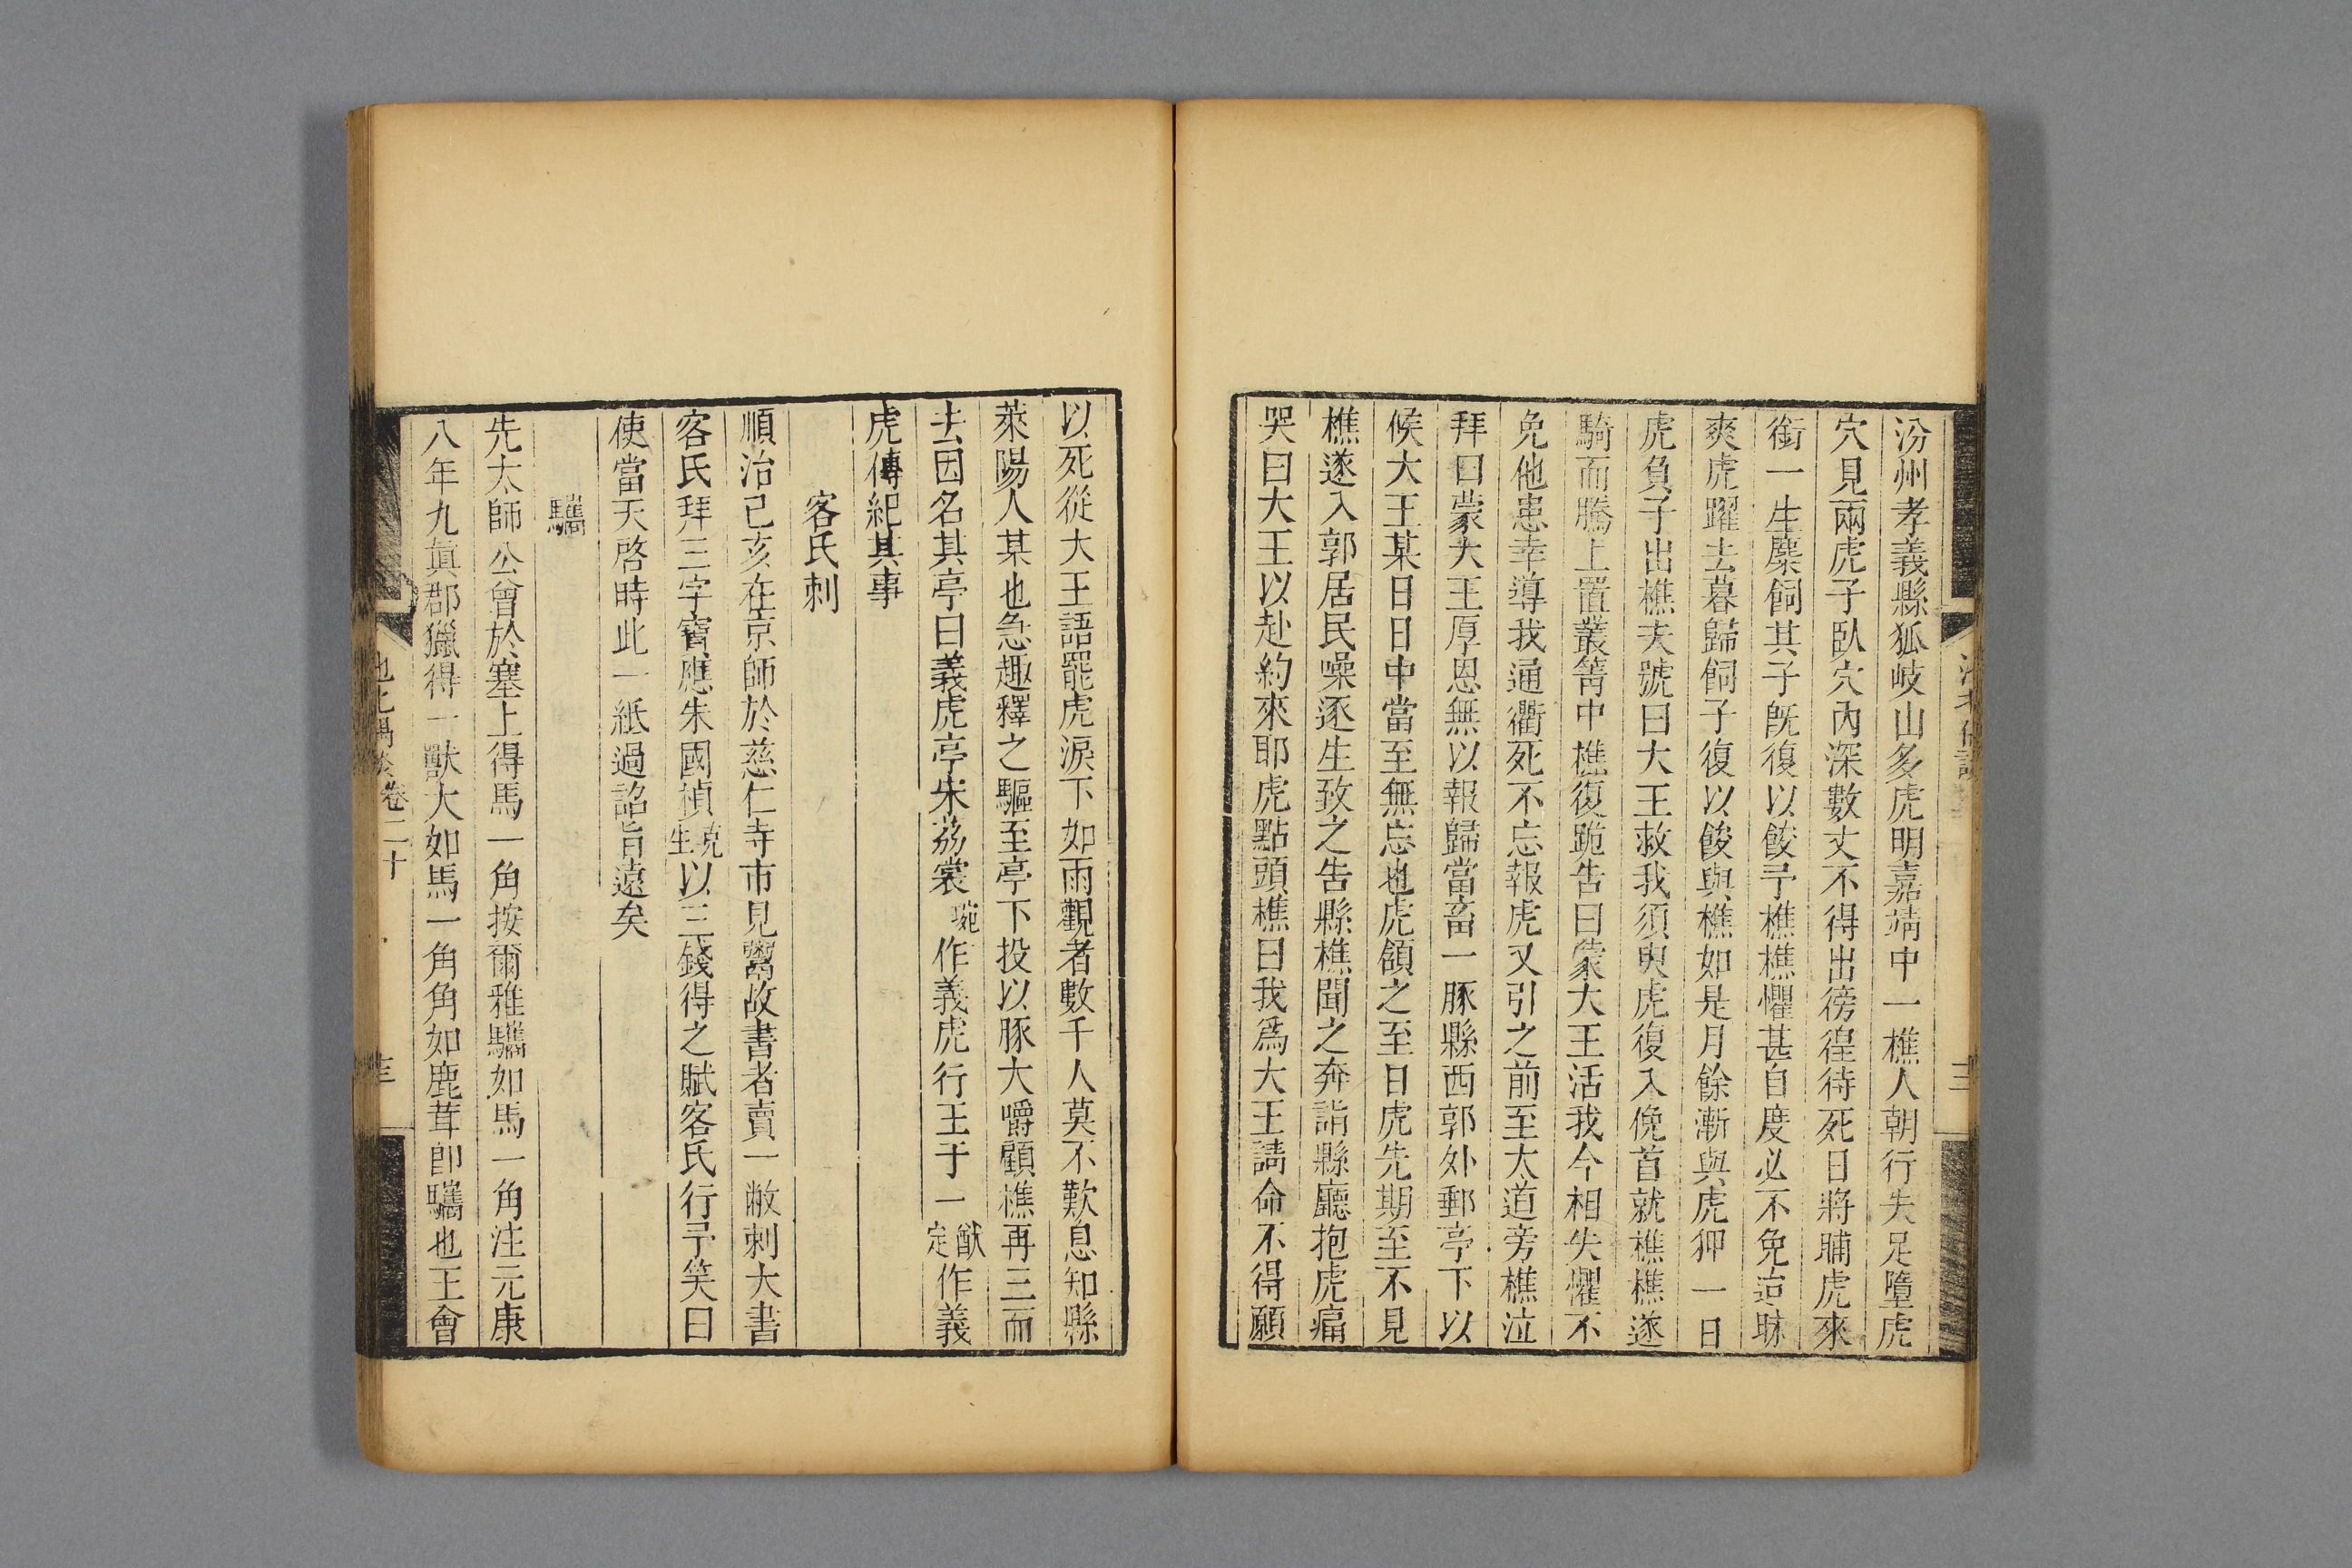 汾州孝義縣狐岐山多虎明嘉靖中一樵人朝行失足墮虎
穴見兩虎子臥穴內深數丈不得出徬徨待死日將晡虎來
銜一生麋飼其子旣復以餕予樵樵懼甚自度必不免迨昧
爽虎躍去暮歸飼子復以餕與樵如是月餘漸與虎狎一日
虎負子出樵夫號曰大王救我須臾虎復入俛首就樵樵遂
騎而騰上置叢箐中樵復跪告曰蒙大王活我今相失懼不
免他患幸導我通衢死不忘報虎又引之前至大道旁樵泣
拜曰蒙大王厚恩無以報歸當畜一豚縣西郭外郵亭下以
候大王某日日中當至無忘也虎頷之至日虎先期至不見
樵遂入郭居民噪逐生致之告縣樵聞之奔詣縣廳抱虎痛
哭曰大王以赴約來耶虎點頭樵曰我爲大王請命不得願
以死從大王語罷虎淚下如雨觀者數千人莫不歎息知縣
萊陽人某也急趣釋之驅至亭下投以豚大嚼顧樵再三而
去因名其亭曰義虎亭宋荔裳琬作義虎行王于一猷定作義
虎傳紀其事
客氏刺
順治己亥在京師於慈仁寺市見鬻故書者賣一敝刺大書
客氏拜三字寶應朱國禎克生以三錢得之賦客氏行予笑曰
使當天啓時此一紙過詔旨遠矣
驨
先太師公曾於塞上得馬一角按爾雅驨如馬一角注元康
八年九眞郡獵得一獸大如馬一角角如鹿茸卽驨也王會
卷二十